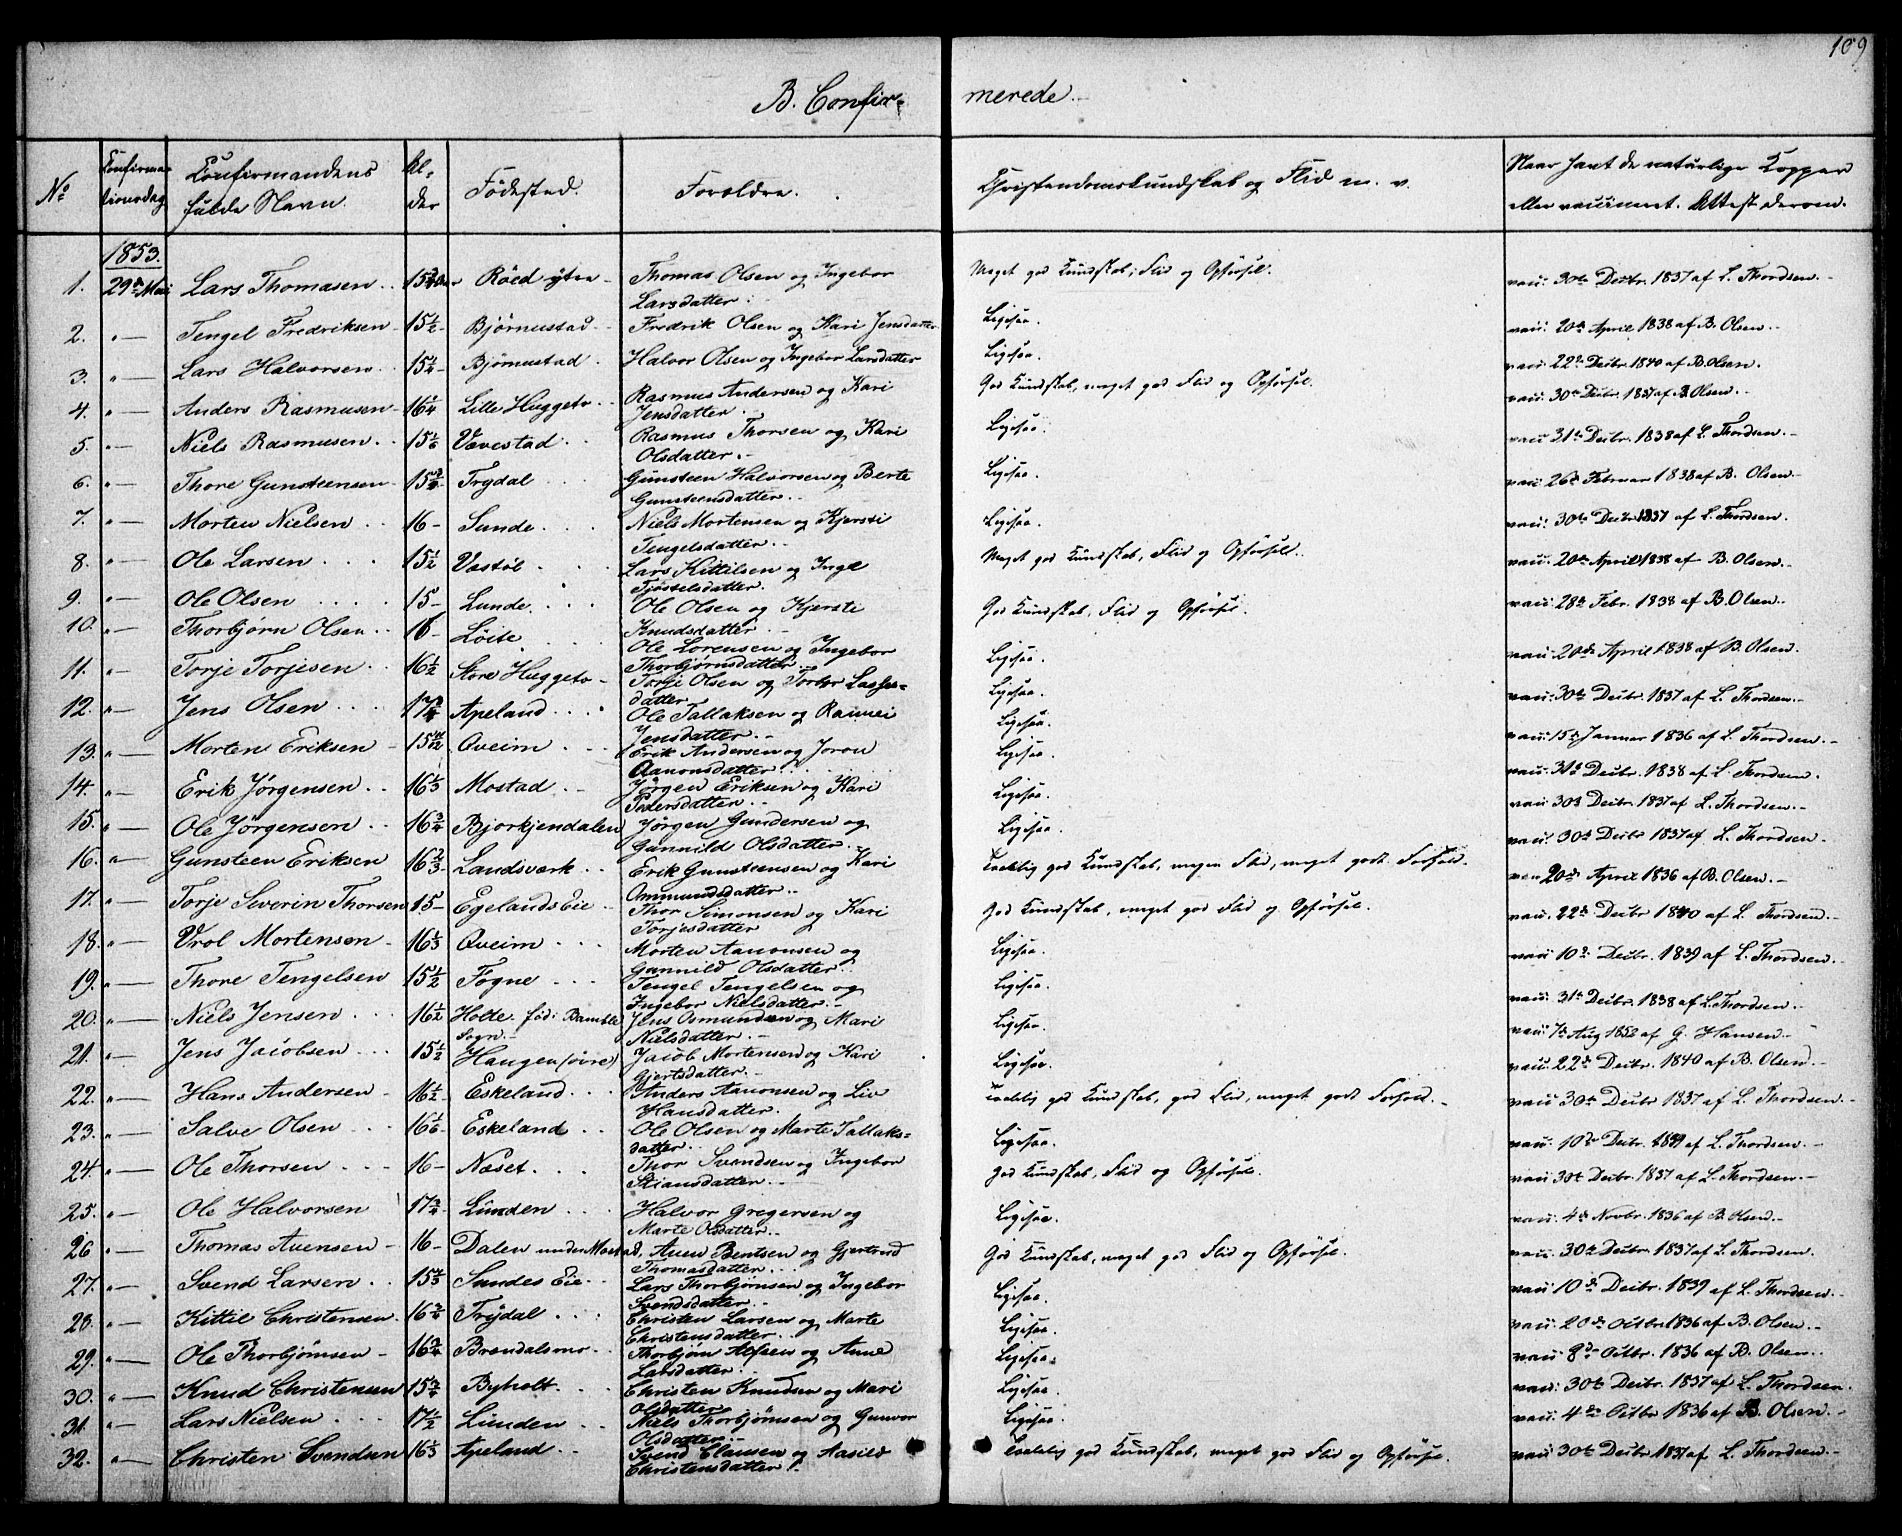 109
B. Confir- merede.-
No | Confirma- tionsdag | Confirmandens fulde Navn. | Al- der | Fødested. | Forældre. | Christendomskundskab og Flid m. v. | Naar havt de naturlige Kopper eller vaccineret. Attest derom.
1853.
1. 29de Mai Lars Thomasen Røed ytre Thomas Olsen og Ingebor Larsdatter Meget god Kundskab, Flid og Opførsel. vacc: 30te Decbr. 1837 af L. Thordsen.-
2. " Tengel Fredriksen 15 1/2 Bjørnustad Fredrik Olsen og Kari Jensdatter Ligesaa. vacc: 20de April 1838 af B. Olsen.-
3. " Lars Halvorsen 15 1/4 Bjørnustad Halvor Olsen og Ingebor Larsdatter Ligesaa. vacc: 22de Decbr. 1840 af B. Olsen.
4. " Anders Rasmusen 16 1/4 Lille Huggeto Rasmus Andersen og Kari Jensdatter God Kundskab, meget god Flid og Opførsel. vacc: 30te Decbr. 1837 af B. Olsen.-
5. " Niels Rasmusen 15 1/6 Vævestad Rasmus Thorsen og Kari Olsdatter.- Ligesaa. vacc: 31te Decbr. 1838 af L. Thordsen.-
6. " Thore Gunsteensen Trydal Gunsteen Halvorsen og Berte Gunsteensdatter.- Ligesaa. vacc: 26de Februar 1838 af B. Olsen-
7. " Morten Nielsen 16- Sunde Niels Mortensen og Kjersti Tengelsdatter.- Ligesaa. vacc: 30te Decbr 1837 af L. Thordsen.
8. " Ole Larsen 15 1/2 Vestøl Lars Kittilsen og Inge Tjøstelsdatter. Meget god Kundskab, Flid og Opførsel. vacc: 20de April 1838 af B. Olsen.-
9. " Ole Olsen 15- Lunde Ole Olsen og Kjerste Knudsdatter God Kundskab, Flid og Opførsel. vacc: 28de Febr. 1838 af B. Olsen.
10. " Thorbjørn Olsen 16 Løite Ole Lorensen og Ingebor Thorbjørnsdatter Ligesaa. vacc: 20de April 1838 af B. Olsen.
11. " Torje Torjesen 16 1/2 Store Huggeto Torje Olsen og Torbor Lasses- datter Ligesaa. vacc: 30te Decbr. 1837 af L. Thordsen.-
12. " Jens Olsen Apeland Ole Tallaksen og Jensdatter.- Ligesaa. vacc: 15de Januar 1836 af L. Thordsen.-
13. " Morten Eriksen Qveim Erik Andersen og Joron Aanonsdatter Ligesaa. vacc: 31te Decbr. 1838 af L. Thordsen.
14. " Erik Jørgensen 16 1/3 Mostad Jørgen Eriksen og Kari Pedersdatter Ligesaa. vacc: 30te Decbr. 1837 af L. Thordsen.-
15. " Ole Jørgensen 16 3/4 Bjorkjendalen Jørgen Gundersen og Gunnild Olsdatter. Ligesaa. vacc: 30te Decbr. 1837 af L. Thordsen.-
16. " Gunsteen Eriksen 16 2/3 Landsverk Erik Gunsteensen og Kari Ommundsdatter Taalelig god Kundskab, megen Flid, meget godt Forhold. vacc 20de April 1836 af B. Olsen.-
17. " Torje Severin Thorsen 15- Egelands Eie Thor Simonsen og Kari Torjesdatter God Kundskab, meget god Flid og Opførsel. vacc: 22de Decbr 1840 af L. Thordsen.-
18. " Vrol Mortensen 16 1/3 Qveim Morten Aanonsen og Gunnild Olsdatter Ligesaa. vacc: 10de Decbr. 1839 af L. Thordsen.
19. " Thore Tengelsen 15 1/2 Fogne Tengel Tengelsen og Ingebor Nielsdatter.- Ligesaa. vacc: 31te Decbr. 1838 af L. Thordsen.-
20. " Niels Jensen 16 1/2 Holte fød i Bamble Sogn.- Jens Osmundsen og Mari Nielsdatter.- Ligesaa. vacc: 7de Aug 1852 af G. Hansen.-
21. " Jens Jacobsen 15 1/2 Haugen (øvre) Jacob Mortensen og Kari Gjertsdatter.- Ligesaa. vacc: 22de Decbr. 1840 af B. Olsen.-
22. " Hans Andersen 16 1/2 Eskeland Anders Aanonsen og Liv Hansdatter. Taalelig god Kundskab, god Flid, meget godt Forhold.- vacc: 30te Decbr 1837 af L. Thordsen.-
23. " Salve Olsen 16 1/6 Eskeland Ole Olsen og Marte Tallaks- datter.- Ligesaa. vacc: 10de Decbr. 1839 af L. Thordsen.-
24. " Ole Thorsen 16- Næset Thor Svendsen og Ingebor Stiansdatter.- God Kundskab, Flid og Opførsel. vacc: 30te Decbr. 1837 af L. Thordsen.-
25. " Ole Halvorsen Lunden Halvor Gregersen og Marte Olsdatter. Ligesaa. vacc: 4de Novbr. 1836 af B. Olsen.-
26. " Thomas Avensen 16- Dalen under Mostad, Aven Bentsen og Gjertrud Thomasdatter God Kundskab, meget god Flid og Opførsel. vacc: 30te Decbr. 1837 af L. Thordsen.
27. " Svend Larsen Sundes Eie Lars Thorbjørnsen og Ingebor Svendsdatter Ligesaa. vacc: 10de Decbr. 1839 af L. Thordsen.
28. " Kittil Christensen Trydal Christen Larsen og Marte Christensdatter Ligesaa. vacc: 20de Octbr 1836 af B. Olsen.-
29. " Ole Thorbjørnsen 16 3/4 Brændalsmo Thorbjørn Alfsen og Anne Larsdatter Ligesaa. vacc: 8de Octbr. 1836 af B. Olsen.
30. " Knud Christensen 15 3/4 Byholt Christen Knudsen og Mari Olsdatter Ligesaa. vacc: 30te Decbr. 1837 af L. Thordsen.
31. " Lars Nielsen 17 1/2 Lunden Niels Thorbjørnsen og Gunvor Olsdatter.- Ligesaa. vacc: 4de Octbr 1836 af B. Olsen.-
32. " Christen Svendsen 16 1/3 Apeland Svend Clausen og Aasild Christensdatter. Taalelig god Kundskab, meget god Flid og Opførsel. vacc: 30te Decbr 1837 af L. Thordsen.-